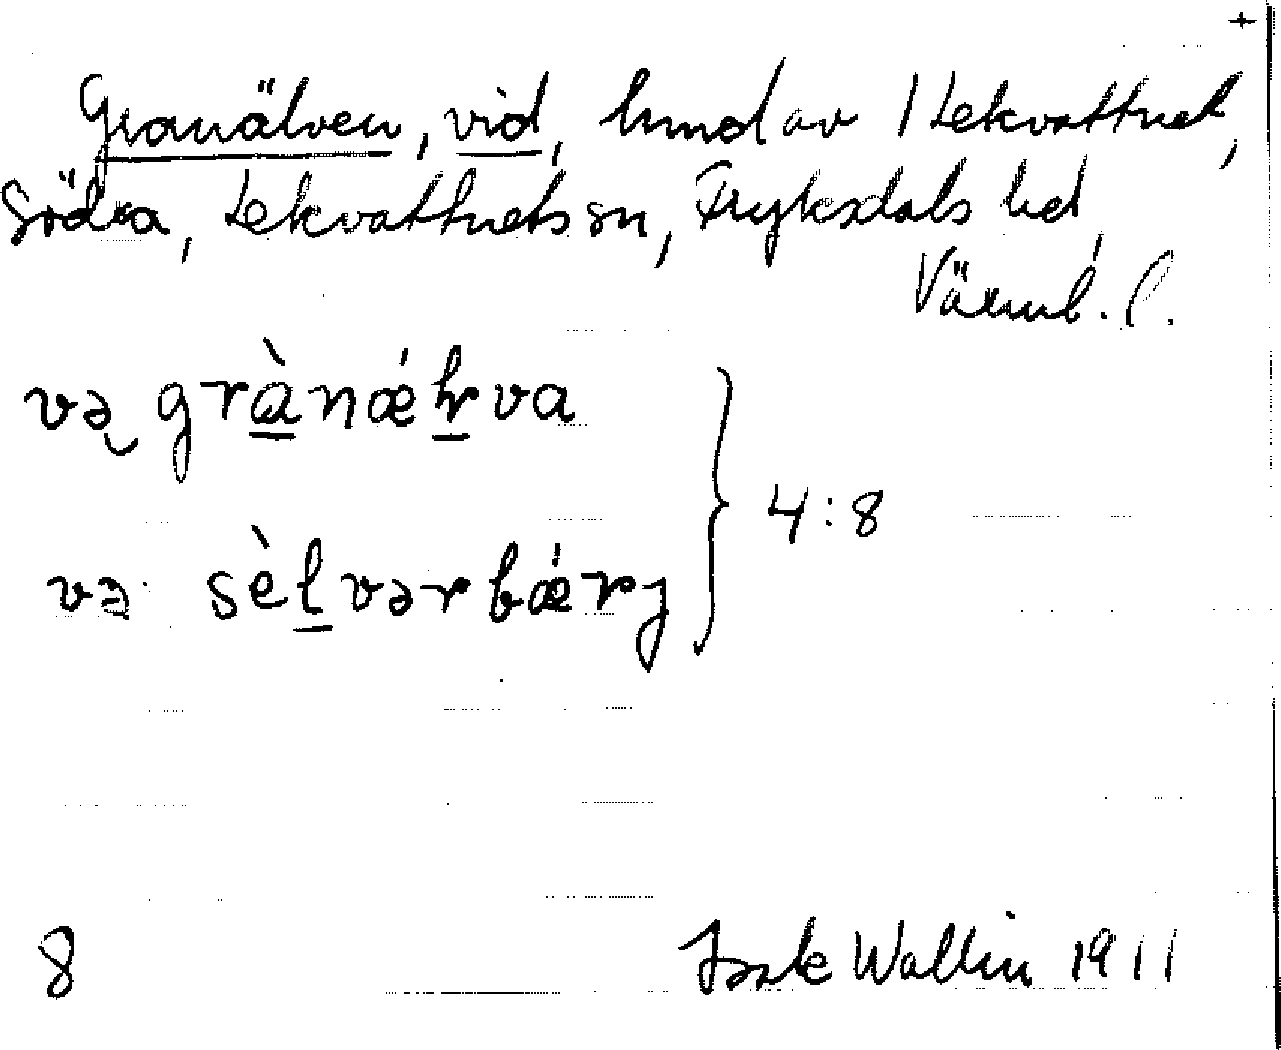 +
Granälven, vid, hmd av 1 Lekvattnet,
Södra, Lekvattnets sn, Fryksdals hd,
Värml. l.
və grànǽlva
və sèlvərbǽrj
} 4:8
8 Isak Wallin 1911